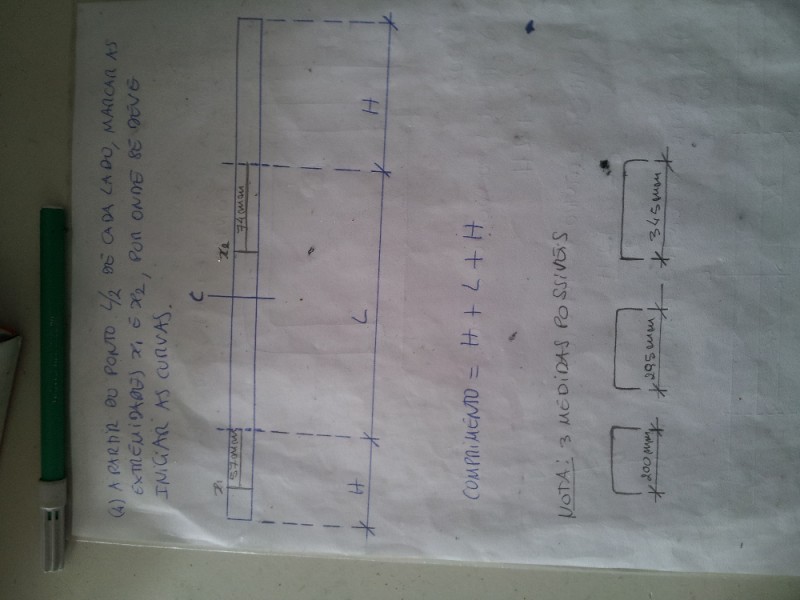 (4) A PARTIR DO PONTO L/2 DE CADA LADO, MARCAR AS
EXTREMIDADES X1 E X2, POR ONDE SE DEVE
INICIAR AS CURVAS.
X1
C
X2
57mm
74mm
H
L
H
COMPRIMENTO = H + L + H
NOTA: 3 MEDIDAS POSSIVEIS
200mm
295mm
345mm